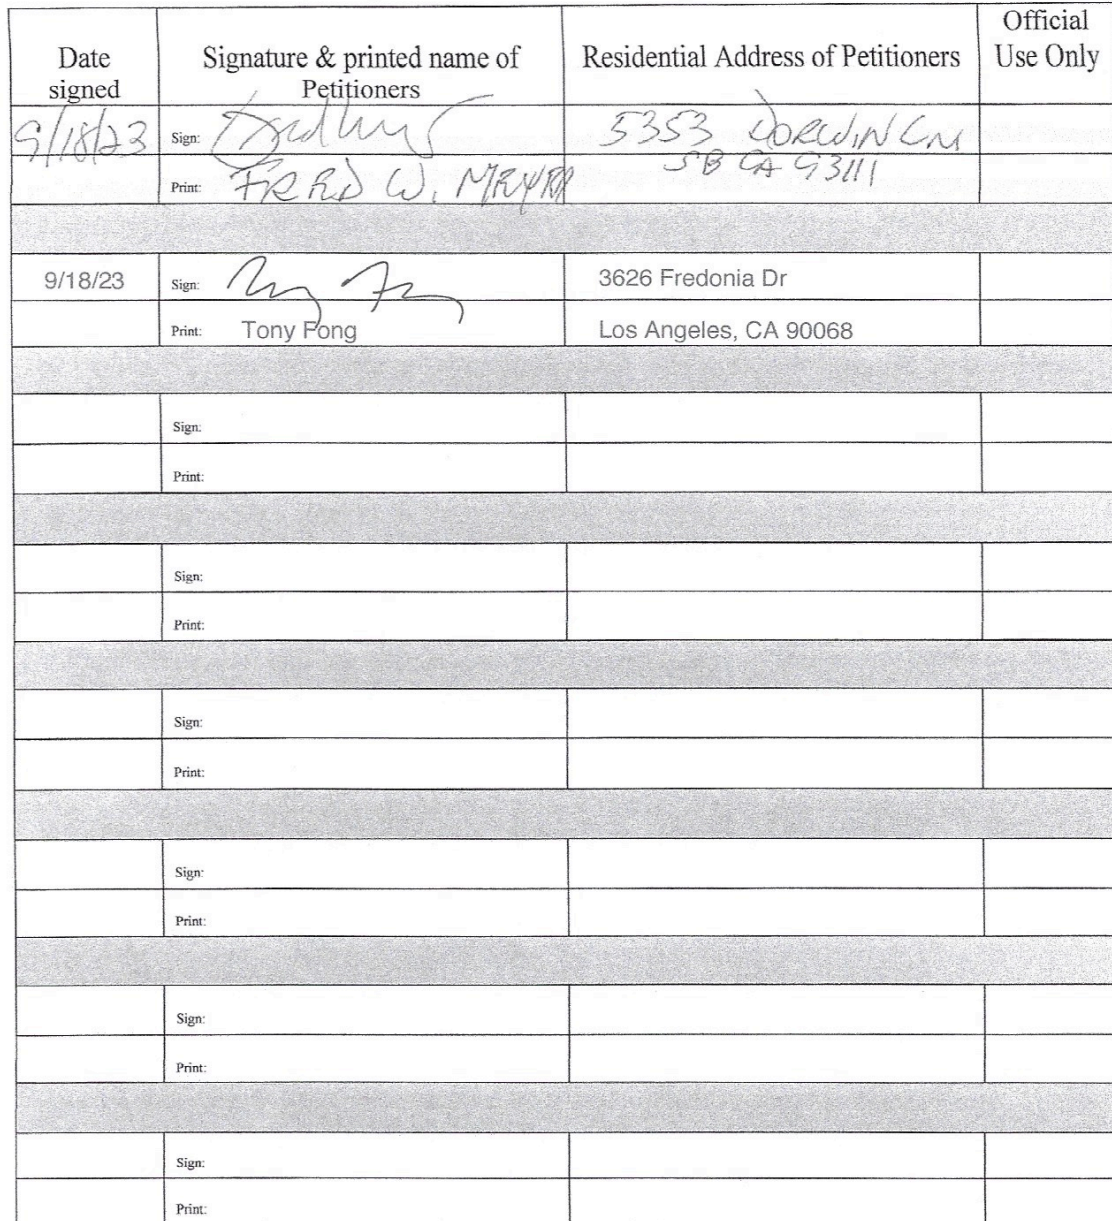 Date signed
Signature & printed name of Petitioners
Residential Address of Petitioners
Official Use Only
9/18/23
Sign:
5353 DORWIN LN
SB CA 93111
Print: FRED W.
9/18/23
Sign:
3626 Fredonia Dr
Print: Tony Fong
Los Angeles, CA 90068
Sign:
Print:
Sign:
Print:
Sign:
Print:
Sign:
Print:
Sign:
Print:
Sign:
Print: